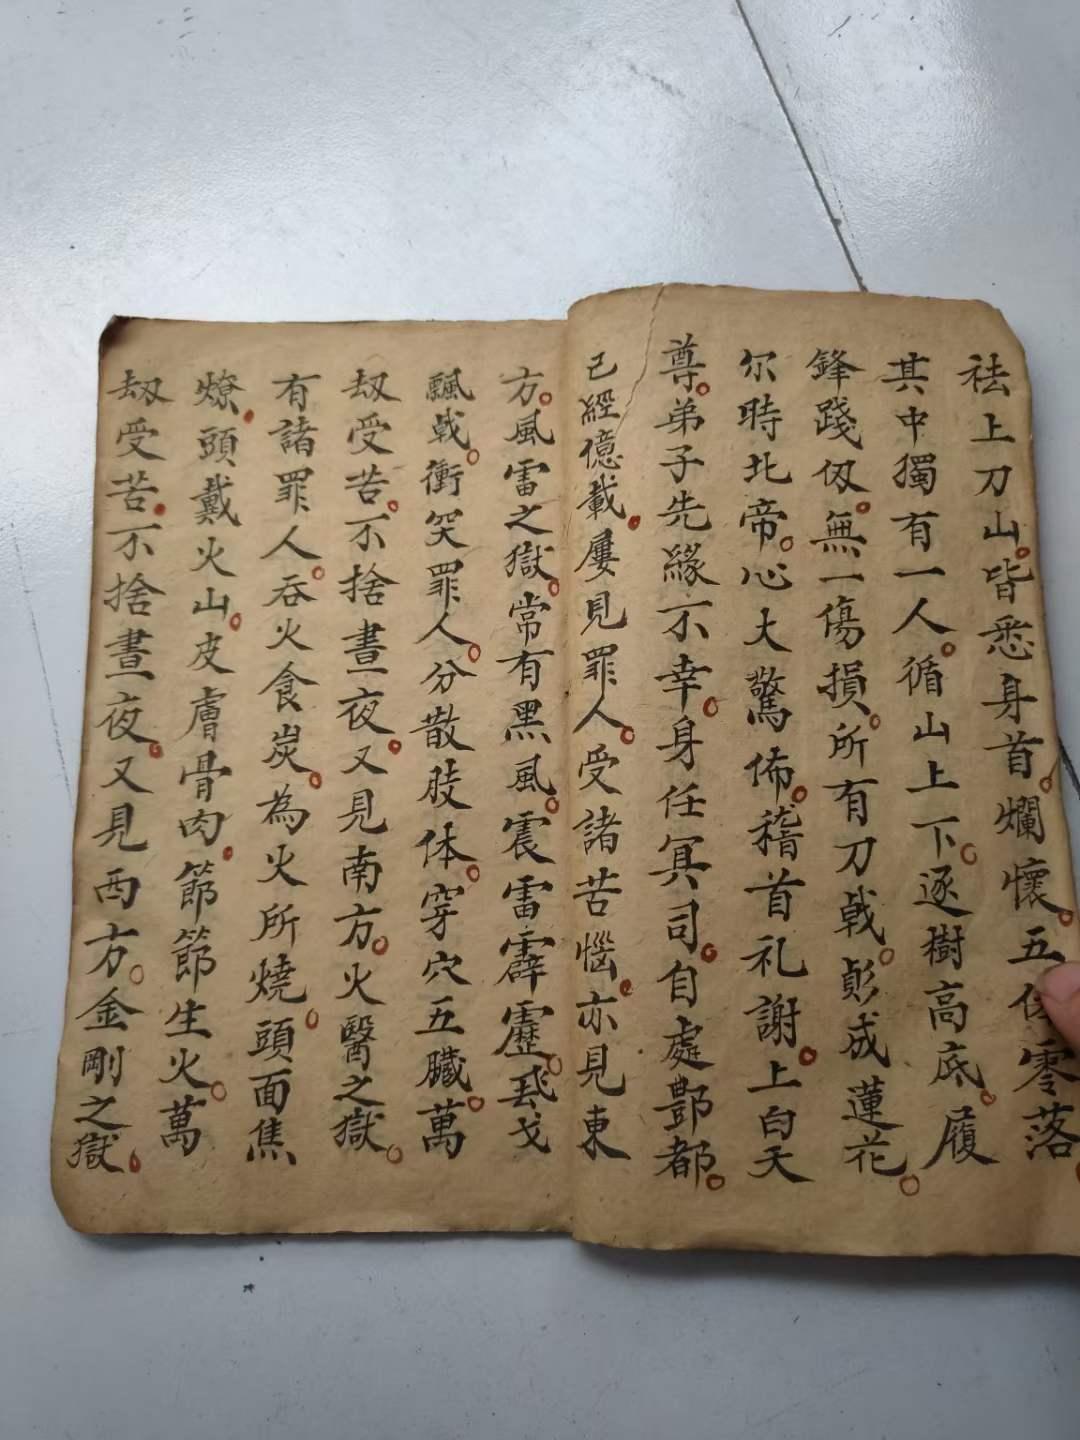 祛上刀山皆悉身首爛懷五体零落
其中獨有一人循山上下逐樹高底履
鋒踐仭無一傷損所有刀戟彭成蓮花
尔時北帝心大驚佈稽首礼謝上白天
尊弟子先緣不幸身任冥司自處酆都
已經億載屢見罪人受諸苦惱亦見東
方風雷之獄常有黑風震雷霹靂飛戈
飄戟衝突罪人分散肢体穿穴五臟萬
刼受苦不捨晝夜又見南方火醫之獄
有諸罪人吞火食炭為火所燒頭面焦
燎頭戴火山皮膚骨肉節節生火萬
刼受苦不捨晝夜又見西方金剛之獄